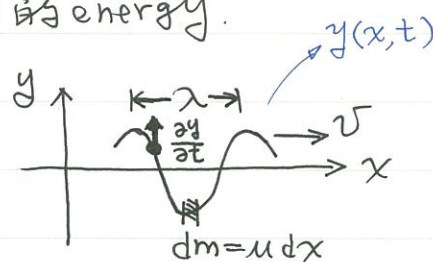 的energy.
y(x,t)
y
λ
∂y
∂t
v
x
dm=μdx